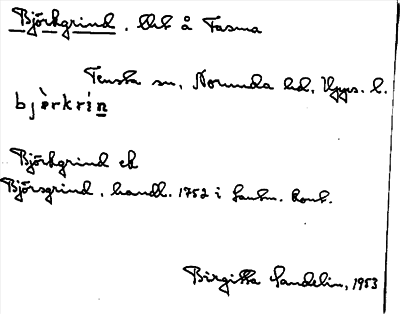 Björkgrind, bbt å Fasma
Tensta sn, Norunda hd, Upps. l.
bjə̀rkrín
Björkgrind ek
Björsgrind, handl. 1752 i Lantm. kont.
Birgitta Sandelin, 1953